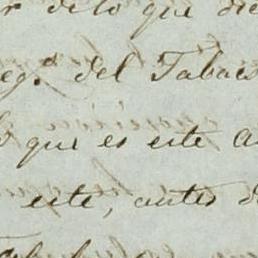 r de lo que die
eg.s del Tabaco
lo que es este a
este, antes d